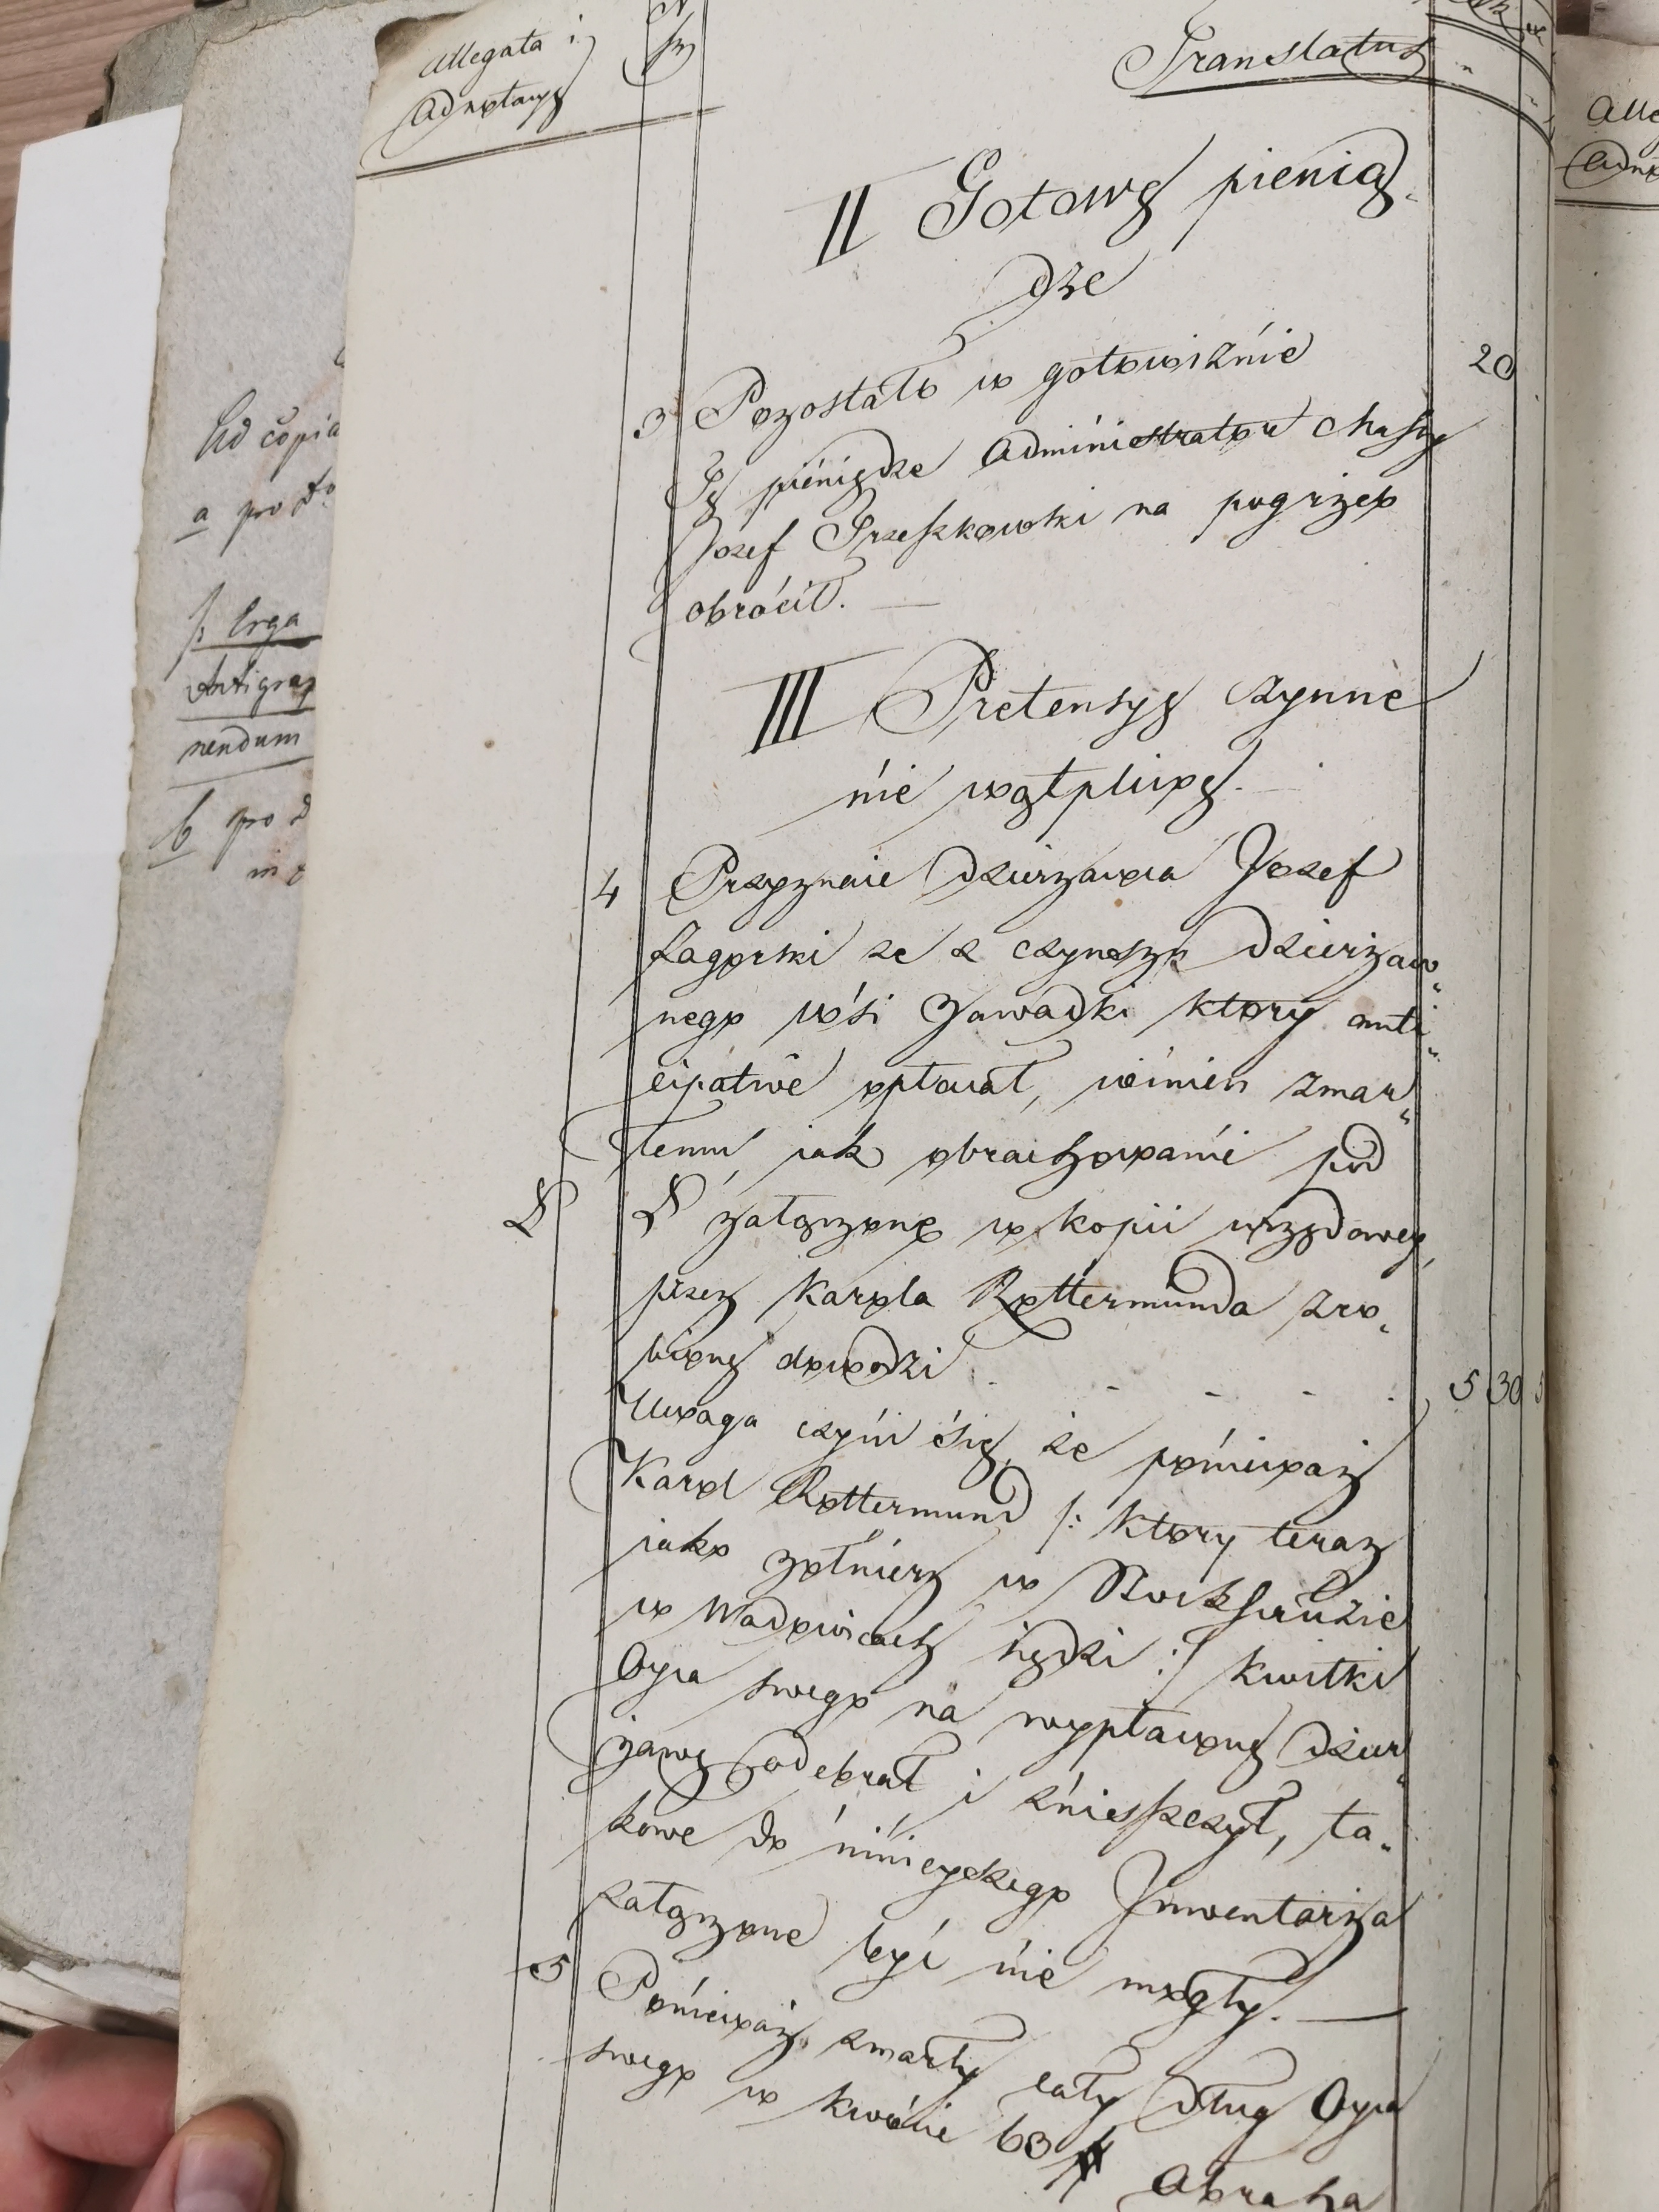 Allegata i
Adnotacye
N
Translatus
II Gotowe pienią-
dze
20
3 Pozostało w gotowiznie
Te pieniądze Administrator Massy
Jozef Trzeszkowski na pogrzeb
obrócił. —
III Pretensye czynne
nie wątpliwe.
4 Przyznaie Dzierzawca Jozef
Zagorski ze z czynszu Dzierzaw„
nego wśi Zawadki ktory anti„
cipative opłacał, winien zmar„
łemu, jak obrachowanie pod
załączone w kopii urzędowey,
przez Karola Rottermunda zro„
bione dowodzi . - - - -
5 30 5
Uwaga czyni śię, ze poniewaz
Karol Rottermund /: ktory teraz
jako zołnierz w Stockhauzie
w Wadowicach siędzi :/ kwitki
Oyca swego na wypłacone Dzier„
zawę odebrał i znieszczył, ta„
kowe do ninieyszego Inwentarza
załączone być nie mogły. —
5 Poniewaz zmarły cały dług Oyca
swego w kwocie 63 #
Abraha
Ad copia
a pro
/: Erga
Antigrap
nendum
b pro
Alle
Adno